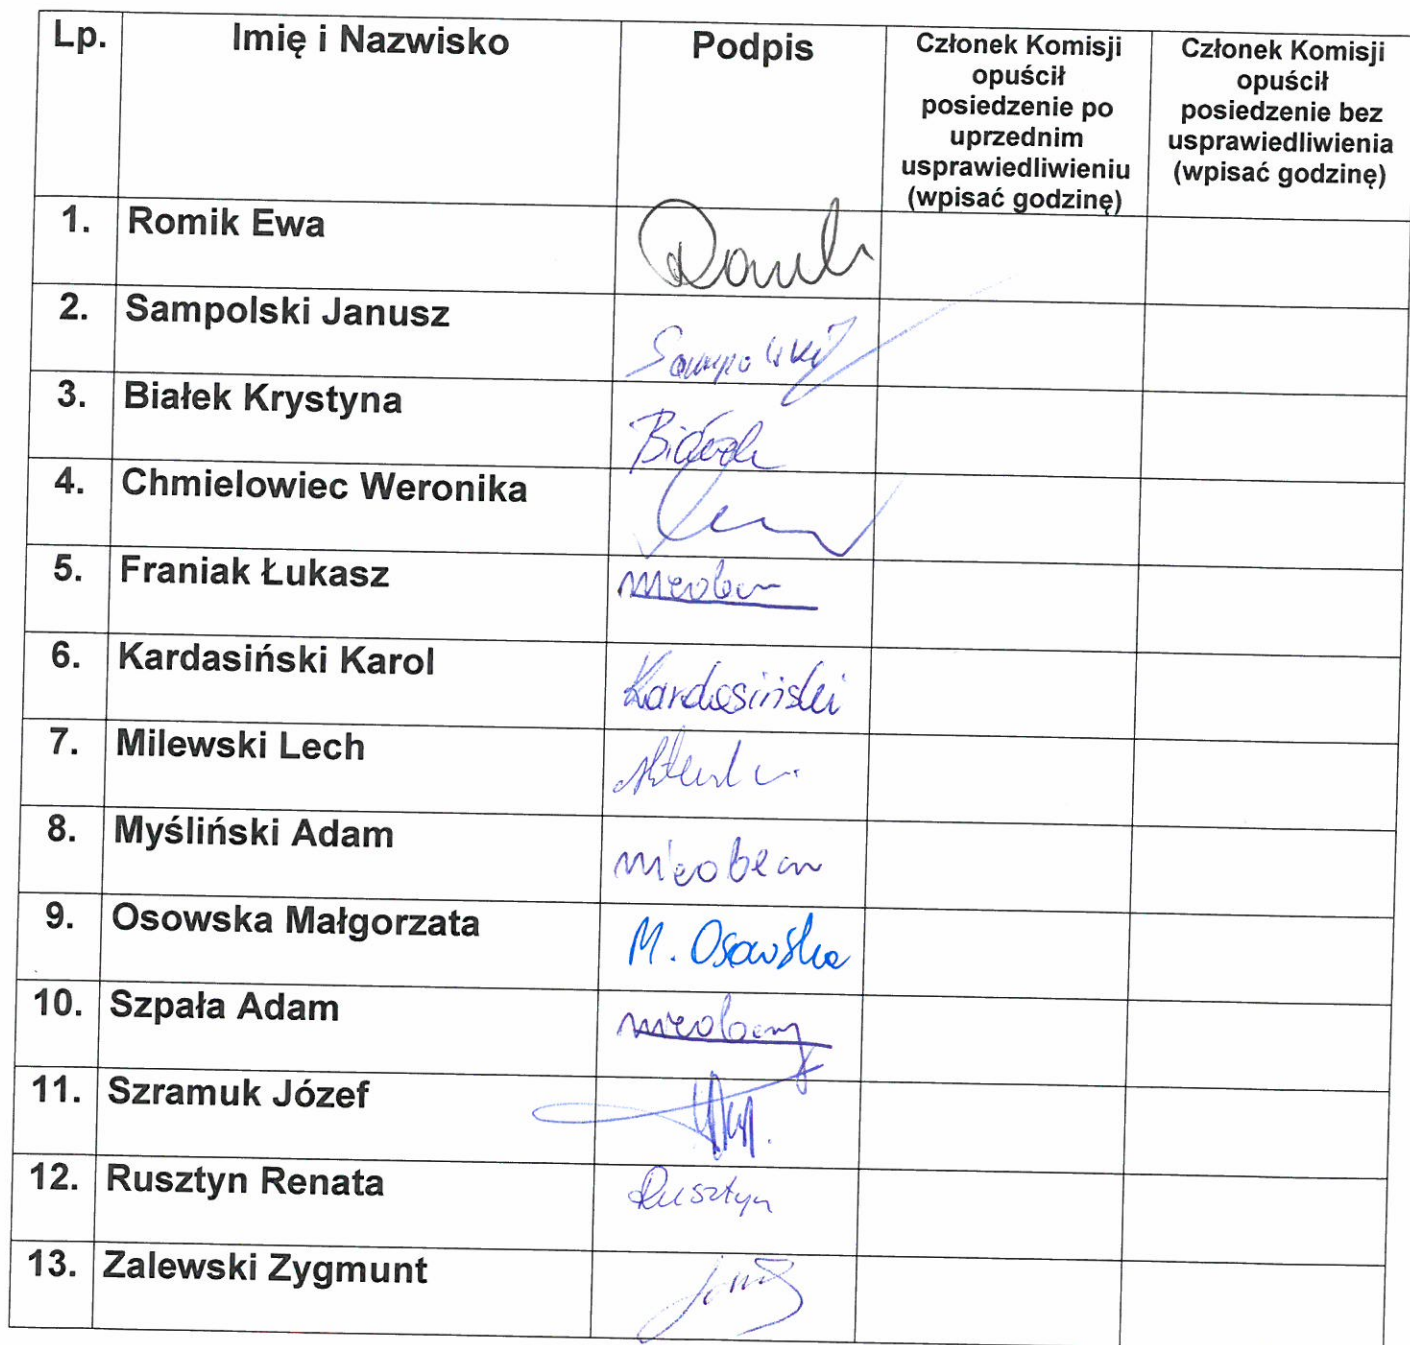 Lp. Imię i Nazwisko Podpis Członek Komisji opuścił posiedzenie po uprzednim usprawiedliwieniu (wpisać godzinę) Członek Komisji opuścił posiedzenie bez usprawiedliwienia (wpisać godzinę)
1. Romik Ewa
2. Sampolski Janusz
3. Białek Krystyna Białek
4. Chmielowiec Weronika
5. Franiak Łukasz
6. Kardasiński Karol Kardasiński
7. Milewski Lech
8. Myśliński Adam nieobecn
9. Osowska Małgorzata M. Osowska
10. Szpała Adam nieobecny
11. Szramuk Józef
12. Rusztyn Renata Rusztyn
13. Zalewski Zygmunt